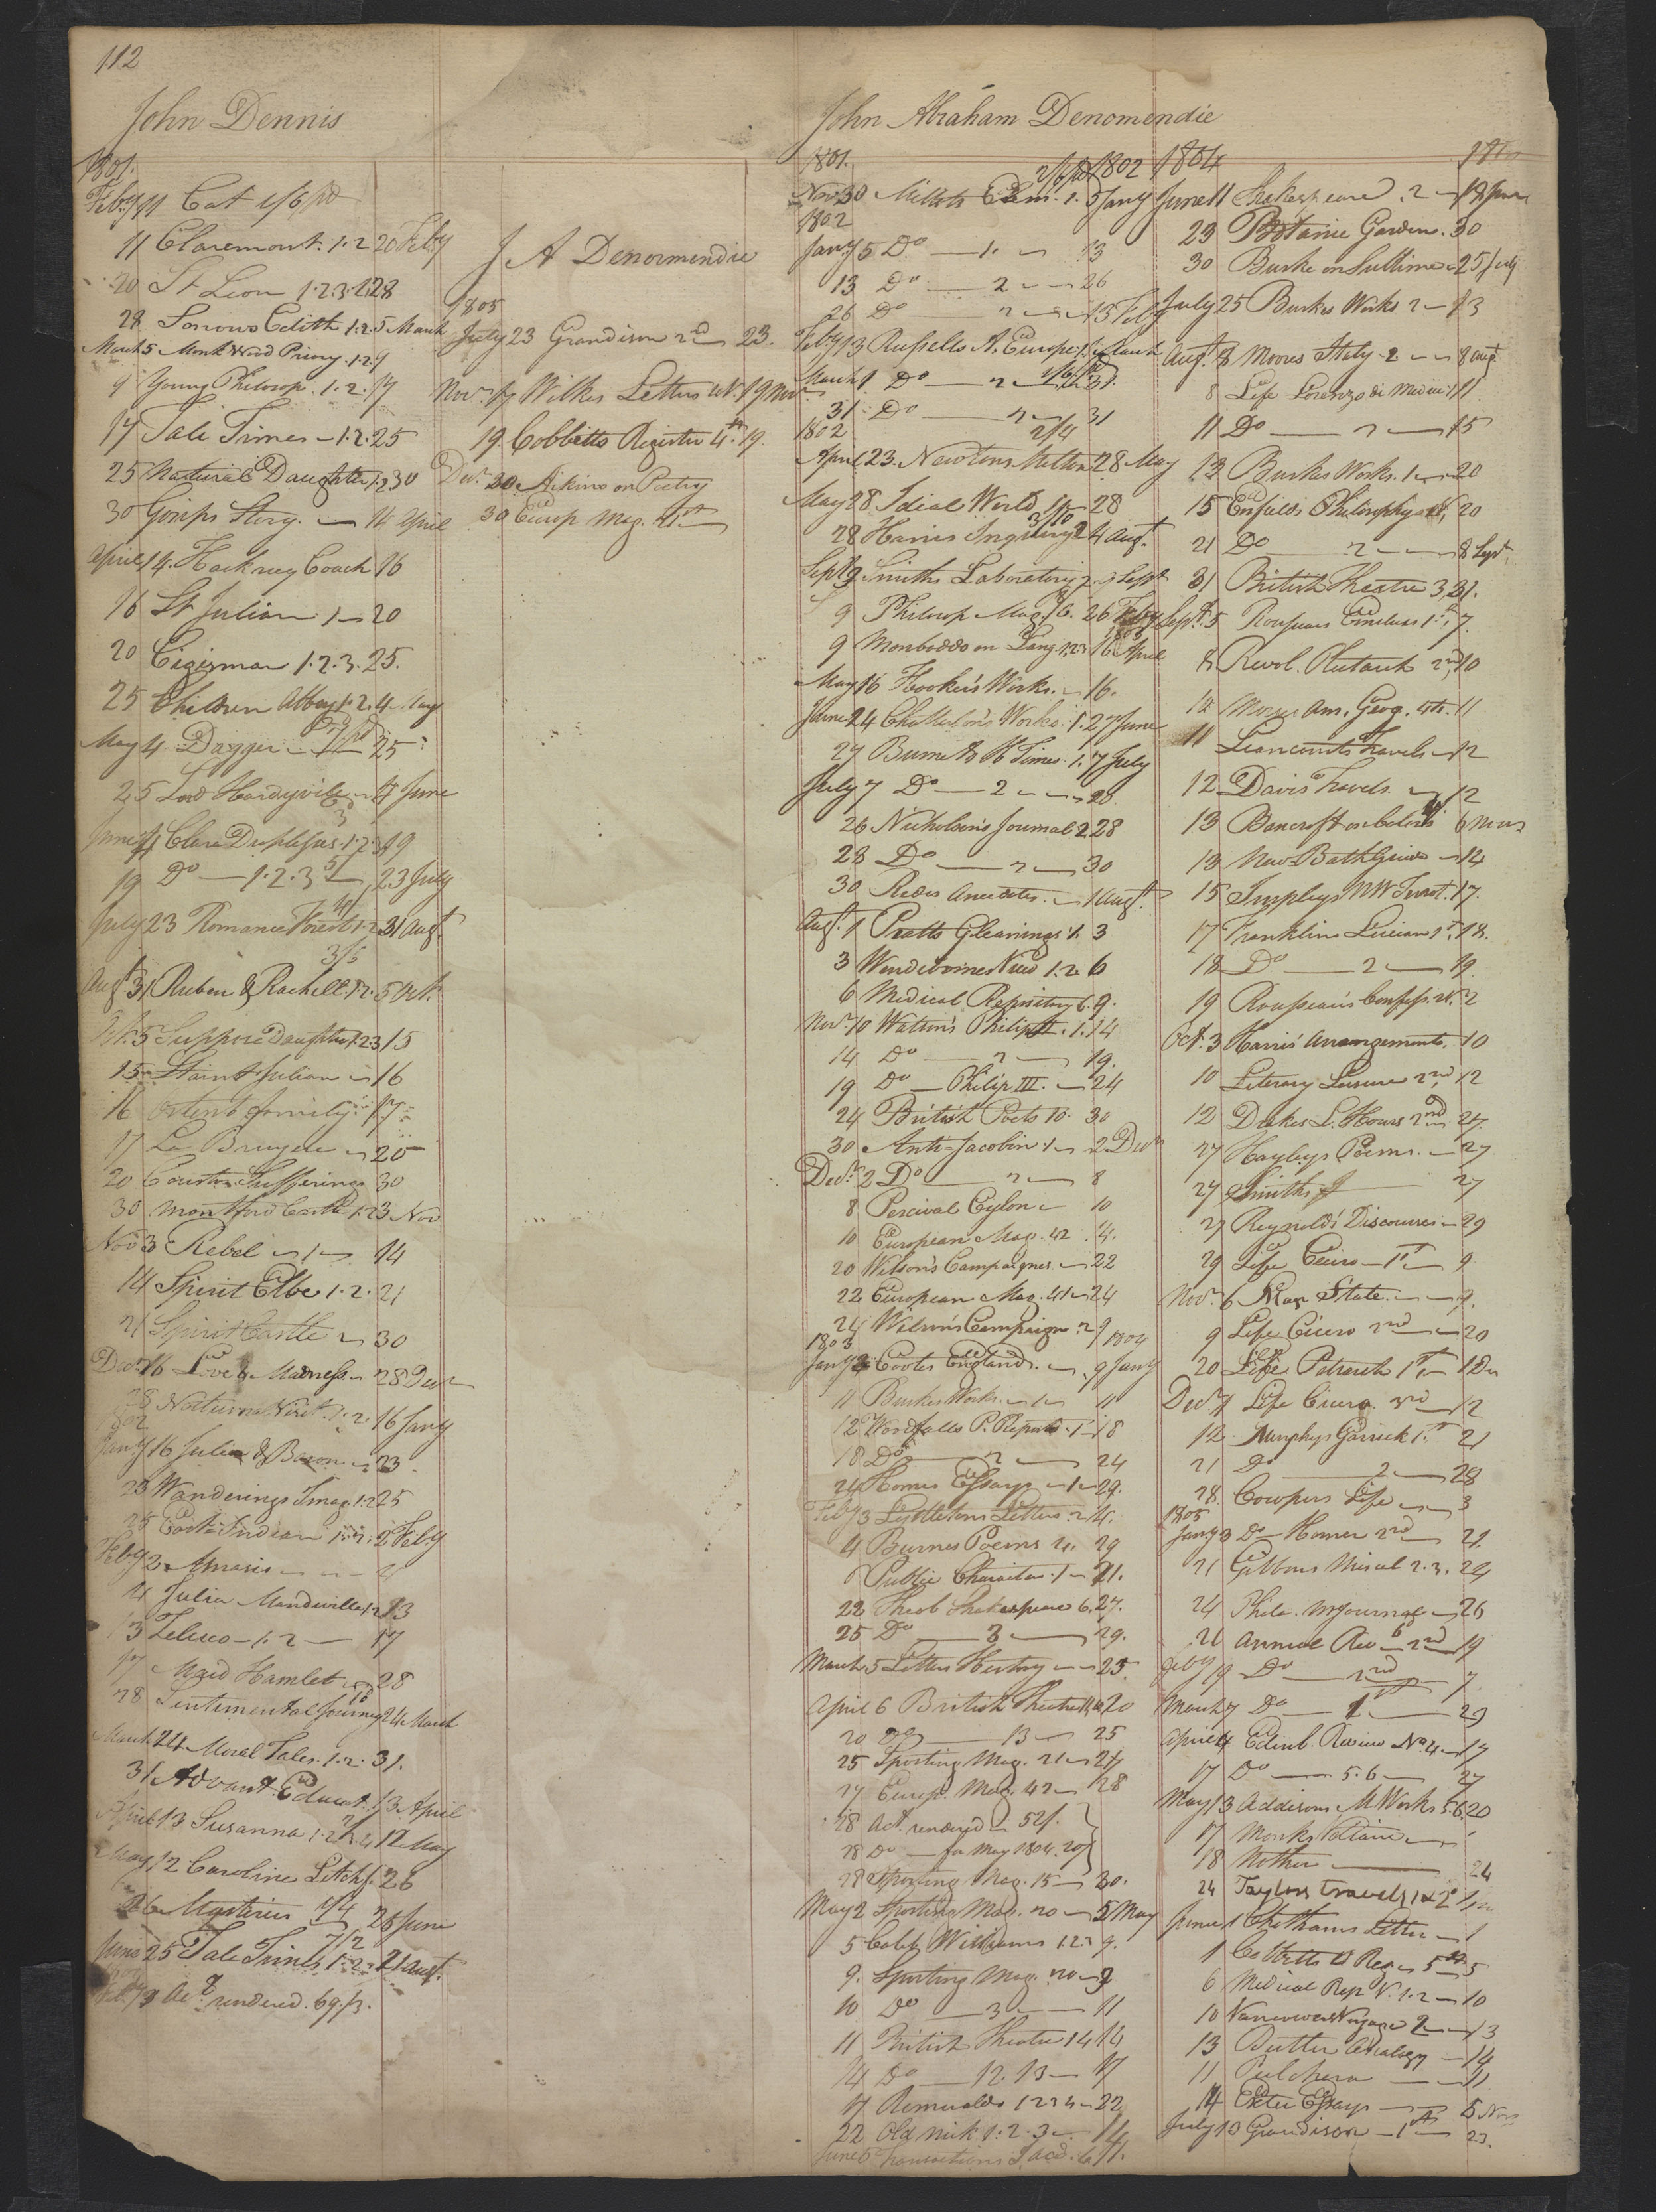 112
John Dennis
1801.
Feby 11 Cat 1/6 pd
11 Claremont. 1.2 20 Feby
20 St Leon 1.2.3. 28
28 Sorrows Edith 1.2 5 March
March 5 Monk Wood Priory. 1.2 9
9 Young Philosop. 1.2. 17
17 Tale Times 1.2. 25
25 Natural Daughter 1.2 30
30 Gossips Story. — 14 April
April 14. Hackney Coach 16
16 St Julian 1 — 20
20 1.2.3. 25.
25 Children Abbey 1.2. 4 May
May 4 Dagger — 25
25 Lord Hardyville — 4 June
June 4 Clara Duplessis. 1.2.3 19
19 Do — 1.2.3 — 23 July
July 23 Romance Forest 1.2. 31 Augt
3/5
Augt 31 Ruben & Rachell. 1.2. 5 Oct.
Oct. 5 Suppose Daughter 1.2.3 15
15 Saint Julian — 16
16 family. 17
17 La Bruyere — 20
20 Sufferings 30
30 Montford Castle 1.2 3 Nov
Nov 3 Rebel — 1 — 14
14 Spirit Elbe 1.2. 21
21 Spirit Castle — 30
Decr 16 Love & Madness 28 Decr
28 Nocturnal Visit. 1.2. 16 Jany
1802
Jany 16 Julia & Baron — 23
23 Wanderings Imag. 1.2 25
25 East Indian 1.2. 2 Feby
Feby 2 Amasis — 4
4 Julia Mandeville 1.2 13
13 Zeluco — 1.2 — 17
17 Maid Hamlet — 28
28 Sentimental Journey 24 March
March 24 Moral Tales. 1.2. 31.
31 Advant. Educat. 13 April
April 13 Susanna 1.2.3.4 12 May
May 12 Caroline Litchf. 26
26 Mysteries 1/4 25 June
7/2
June 25 Tale Times 1.2. 21 Augt.
Feby 9 Act rendered. 69/3.
J A Denormendie
1805
July 23 Grandison 2nd — 23.
Novr. 17 Wilkes Letters 19 Nov
19 Cobbetts Register 4th. 19.
Decr 30 Aikins on Poetry
30 Europ Mag. 41st —
John Abraham Denomendie
1801. 1802
Nov 30 Millots Elem. 1. 5 Jany
1802
Jany 5 Do — 1. — 13
13 Do — 2 — 26
26 Do 2 — 13 Feby
Feby 13 Russells A. Europe 1. March
March 1 Do — 2 — 31.
31 Do — 2 — 31
1802 2/4
April 23. Newtons Milton 28 May
May 28 Ideal World — 28
3/10
28 Harris Inquiry 2 4 Augt.
Sept 3 Smiths Laboratory 2 — 9 Sept
9 Philosop Mag. 16. 26 Feby
1803
9 Monboddo on Lang. 1.2.3 16 April
May 16 Hooker's Works. — 16.
June 24 Chatterton's Works. 1. 27 June
27 Burnet H Times. 1. 7 July
July 7 Do — 2 — 26
26 Nicholson's Journal 2 28
28 Do — 2 — 30
30 Redes Anecdotes. — 1 Augt.
Augt. 1 Pratts Gleanings 1. 3
3 Wendebornes View 1.2 6
6 Medical Repository 6. 9.
Novr 10 Watson's Philip II. 1. 14
14 Do — 2 — 19.
19 Do — Philip III. — 24
24 British Poets 10. 30
30 Anti-Jacobin 1 — 2 Decr
Decr 2 Do — 2 — 8
8 Percival Ceylon — 10
10 European Mag. 42 14.
20 Wilson's Campaignes. — 22
22 European Mag. 41 — 24
24 Wilson's Campaign 2. 9
1803 1804
Jany 2 Cootes England. — 9 Jany
11 Burkes Works. — 1 — 11
12 Woodfalls P. Reports. 1 — 18
18 Do — 2 — 24
24 Homes Essays — 1 — 29.
Feby 3 Lyttletons Letters 2 4.
4 Burnes Poems 2. 29
Public Characters 1 — 21.
22 Theob Shakespeare 6. 27.
25 Do — 3 — 29.
March 5 Letters History — 25.
April 6 British Theatre 12 20
20 Do — 13 — 25
25 Sporting Mag. 21 — 27
27 Europ. Mag. 42 — 28
28 Act. rendered — 52/.
28 Do — for May 1804. 20/
28 Sporting Mag. 15 — 30.
May 2 Sporting Mag. 20 — 5 May
5 Caleb Williams 1.2.3 9.
9. Sporting Mag. 20 — 9
10 Do — 3 — 11
11 British Theatre 14 14
14 Do — 12. 13 — 17
17 Romualdo 1 2 3 4 — 22
22 Old Nick 1.2.3 — 14
June 5 Transactions
1804
June 11 Shakespeare. 2 — 18 June
23 Botanic Garden. 30
30 Burke on Sublime 25 July
July 25 Burkes Works 2 — 13
Augt. 8 Moores Italy. 2 — 8 augt
8 Life Lorenzo di Medici 11
11 Do — 2 — 15
13 Burkes Works. 1 — 20
15 Enfields Philosophy 20
21 Do — 2 — 8 Sept.
31 British Theatre 3, 31.
Sept. 5 Rousseaus Emelius 1st, 7.
8 Revol. Plutarch 2nd 10
12 Morses Am. Geog. 4th. 11
11 Liancourts Travels — 12
12 Davis Travels. — 12
13 Bancroft on Colors 6 Mos
13 New Bath Guide — 14
15 17.
17 Franklins Lucian 1st. 18.
18 Do — 2 — 19
19 Rousseau's Confess. 2
Oct. 3 Harris' Arrangements. 10
10 Literary Leisure 2nd, 12
12 Drakes L. Hours 2nd 27.
27 Hayleys Poems. — 27
27 Smiths — 27
27 Reynolds' Discourses — 29
29 Life Cicero — 1st — 9
Novr. 6 Man State. — 9.
9 Life Cicero 2nd — 20
20 Life Petrarch 1st — 1 Dec
Decr. 7 Life Cicero 3rd — 12
12 Murphys Garrick 1st. 21
21 Do — 2 — 28
28. Cowpers Life — 3
1805
Jany 3 Do — Homer 2nd 21.
21 Gibbons Miscel 2.3. 24
24 Phila. M Journal — 26
26 Annual Rev — 2nd 19
Feby 19 Do — 2nd 7
March 7 Do — 1st — 29
April 4 Edinb. Review No 4 — 17
17 Do — 5.6 — 27
May 13 Addisons M Works 5.6. 20
17 Monks —
18 Mother — 24
24 Taylors Travels 1 & 2
June 1 Chathams Letters — 1
1 Cobbetts W Reg. 5th 5
6 Medical Rep V. 1.2 — 10
10 Vancouvers Voyage 2 — 13
13 Butler Analogy — 14
11 Pulchera — 11
14 Exeter Essays — 5 Nov
July 10 Grandison — 1st — 23.